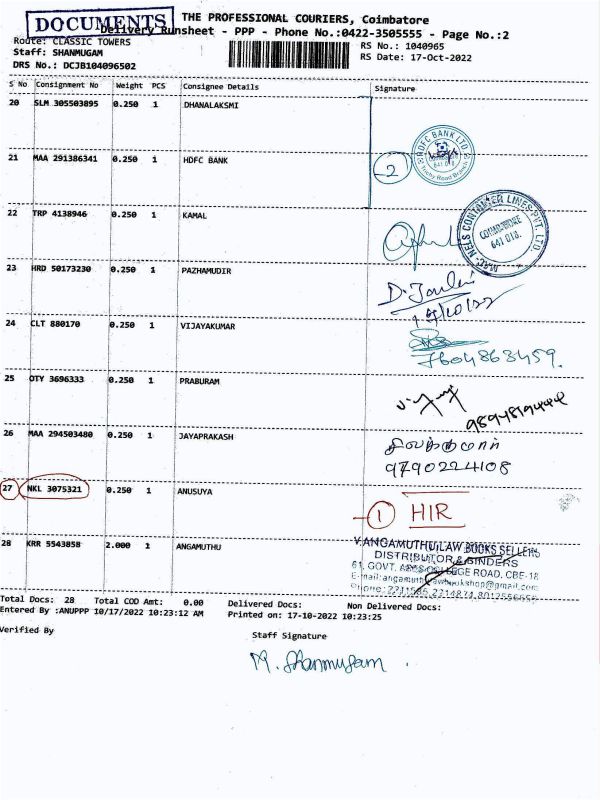 DOCUMENTS
THE PROFESSIONAL COURIERS, Coimbatore
Delivery Runsheet - PPP - Phone No.:0422-3505555 - Page No.:2
Route: CLASSIC TOWERS
RS No.: 1040965
Staff: SHANMUGAM
RS Date: 17-Oct-2022
DRS No.: DCJB104096502
S No Consignment No Weight PCS Consignee Details Signature
20 SLM 305503895 0.250 1 DHANALAKSMI
21 MAA 291386341 0.250 1 HDFC BANK
2
HDFC BANK LTD
Trichy Road Branch
22 TRP 4138946 0.250 1 KAMAL
MAC-NELS CONTAINER LINES PVT. LTD.
COIMBATORE
641 018.
23 HRD 50173230 0.250 1 PAZHAMUDIR
24 CLT 880170 0.250 1 VIJAYAKUMAR
7604863459.
25 OTY 3696333 0.250 1 PRABURAM
26 MAA 294503480 0.250 1 JAYAPRAKASH
9790224108
27 NKL 3075321 0.250 1 ANUSUYA
1 HIR
28 KRR 5543858 2.000 1 ANGAMUTHU
V.ANGAMUTHU LAW BOOKS SELLERS
DISTRIBUTOR & BINDERS
61, GOVT. ARTS COLLEGE ROAD, CBE-18
Total Docs: 28 Total COD Amt: 0.00 Delivered Docs: Non Delivered Docs:
Entered By :ANUPPP 10/17/2022 10:23:12 AM Printed on: 17-10-2022 10:23:25
Verified By
Staff Signature
M. Shanmugam